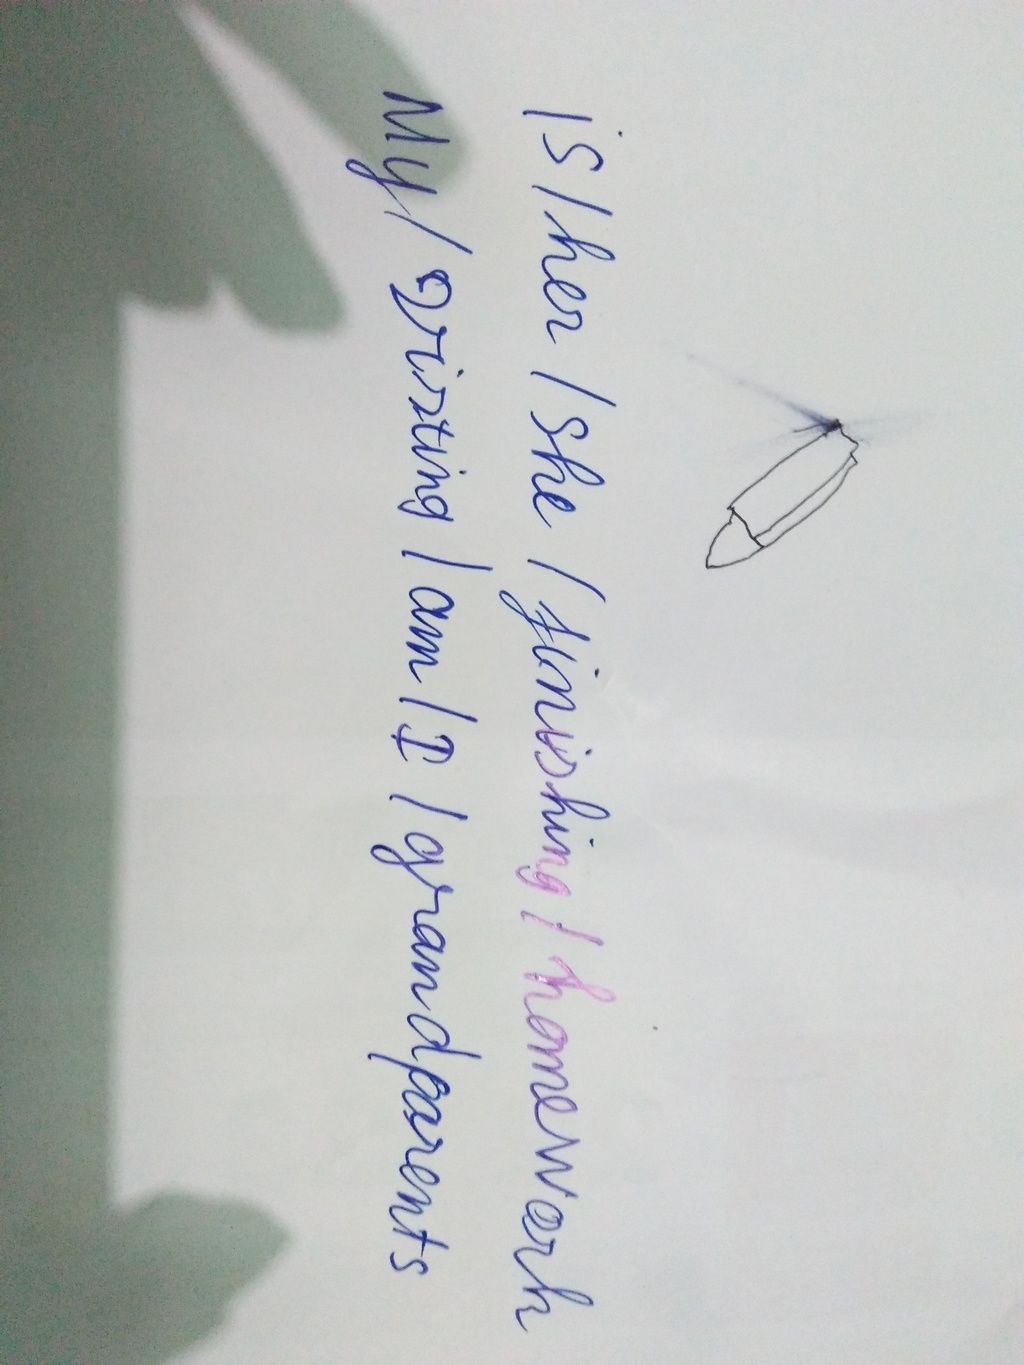 is / her / she / finishing / homework
My / visiting / am / I / grandparents